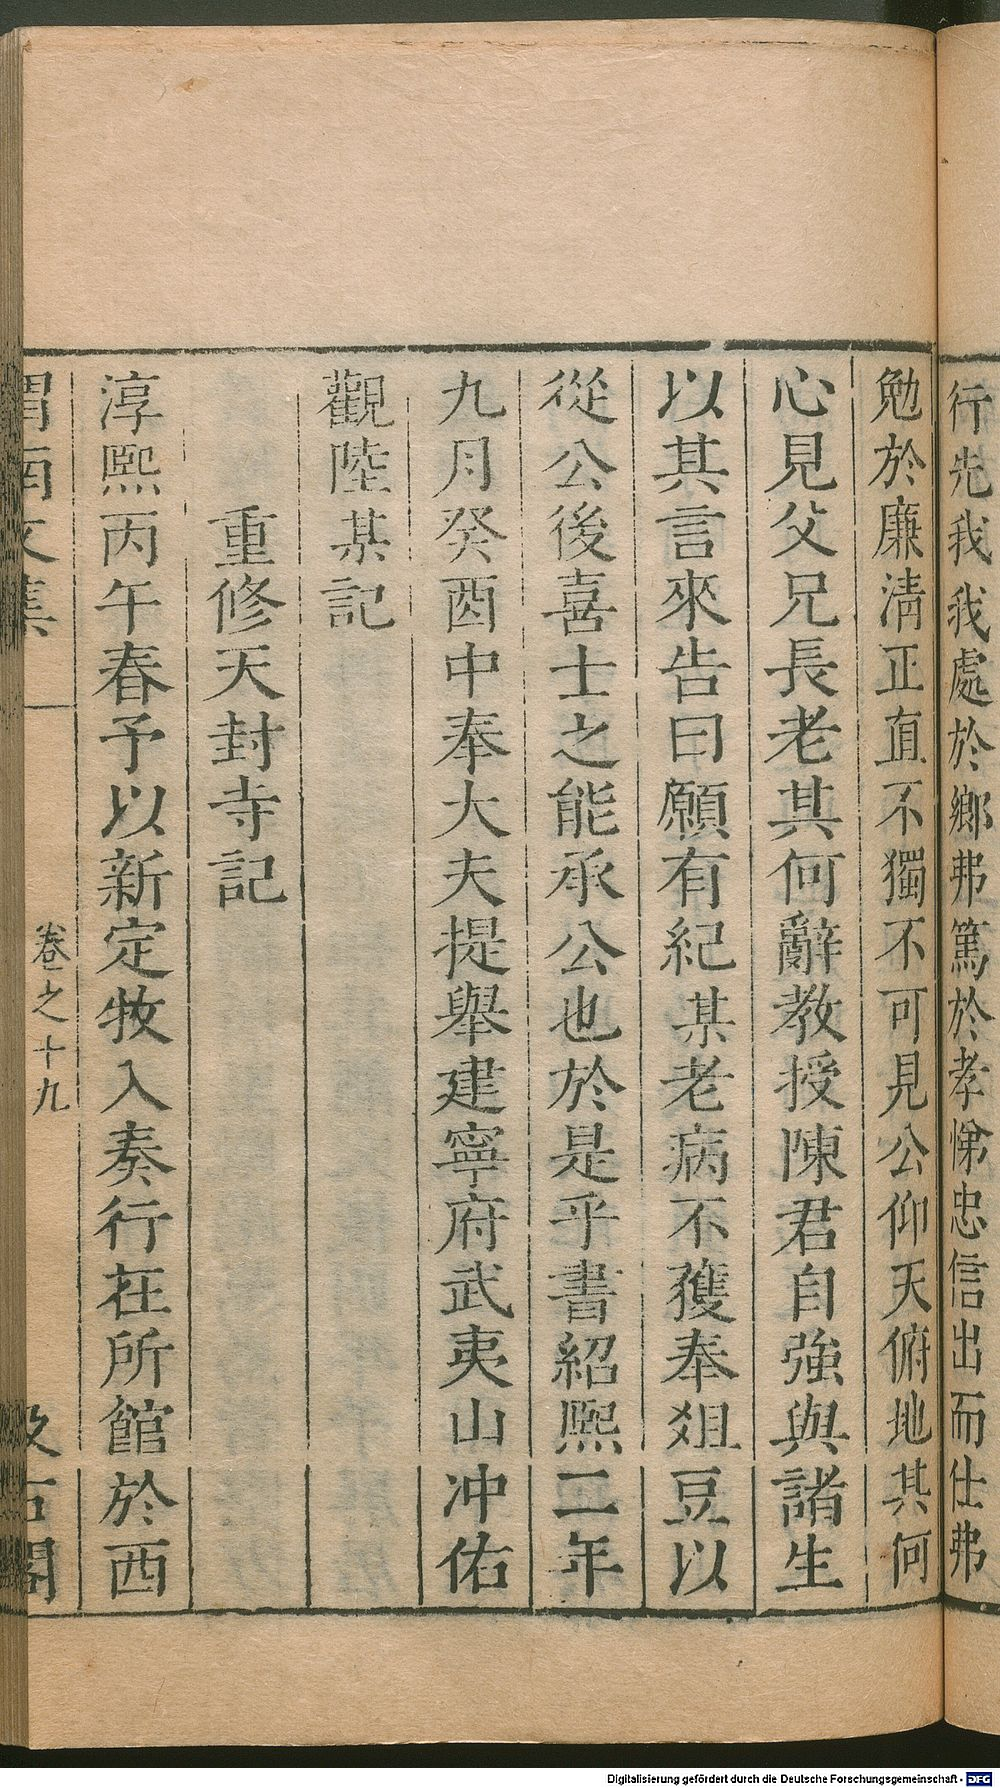 行先我我處於鄉弗篤於孝悌忠信出而仕弗
勉於廉清正直不獨不可見公仰天俯地其何
心見父兄長老其何辭教授陳君自強與諸生
以其言來告曰願有紀某老病不獲奉俎豆以
從公後喜士之能承公也於是乎書紹熙二年
九月癸酉中奉大夫提舉建寧府武夷山冲佑
觀陸某記
重修天封寺記
淳熙丙午春予以新定牧入奏行在所館於西
渭南文集
卷之十九
汲古閣
Digitalisierung gefördert durch die Deutsche Forschungsgemeinschaft - DFG